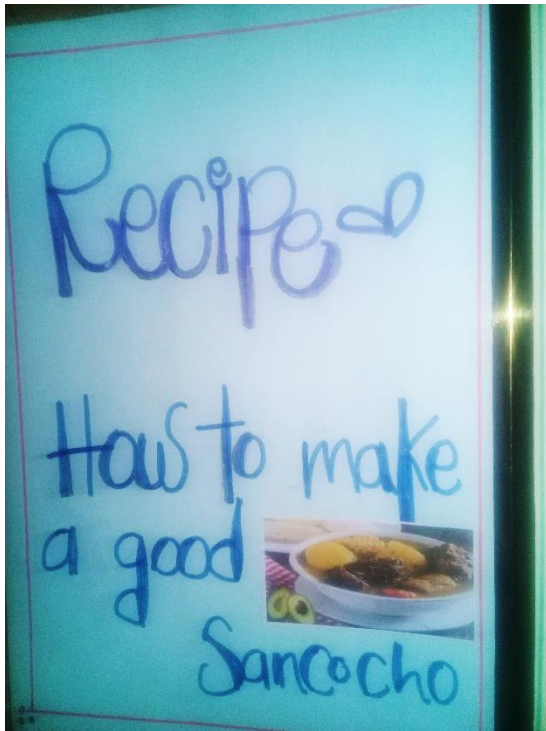 Recipe
How to make
a good
Sancocho